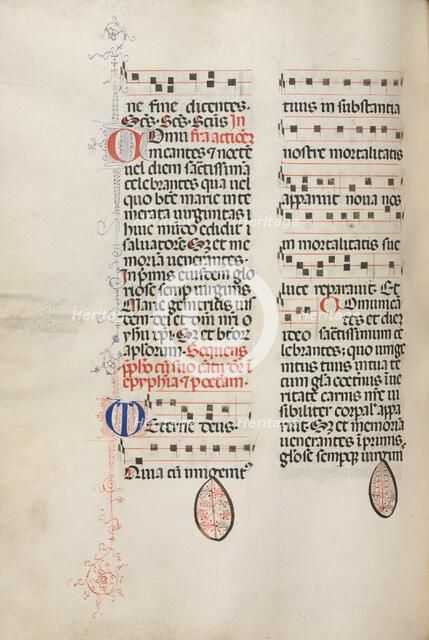 ne fine dicentes.
Scs. Scs. Scus. In
Domini. fra action
Comicantes ⁊ nocte
uel diem sactissima
celebrantes qua uel
quo bte marie inte
merata uirginitas
huic mudo edidit
saluatore. Sz et me
moriam uenerantes.
In primis eiusdem glo
riose semp uirginis
Marie genitricis eius
dem dei et dni nri
yhu xpi. Sz et btor
aplorum. Sequens
Eterne deus.
Quia cu unigenit9
tuus in substantia
nostre mortalitatis
apparuit noua nos
in mortalitatis sue
luce reparauit. Et
Comunican
tes et diem
sactissimum ce
lebrantes. quo unige
nitus tuus in tua te
cum gla coeternus in ue
ritate carnis nre ui
sibiliter corpal appa
ruit. Sz et memoria
uenerantes. In primis.
glose sempq uirgin
Heritage
Images